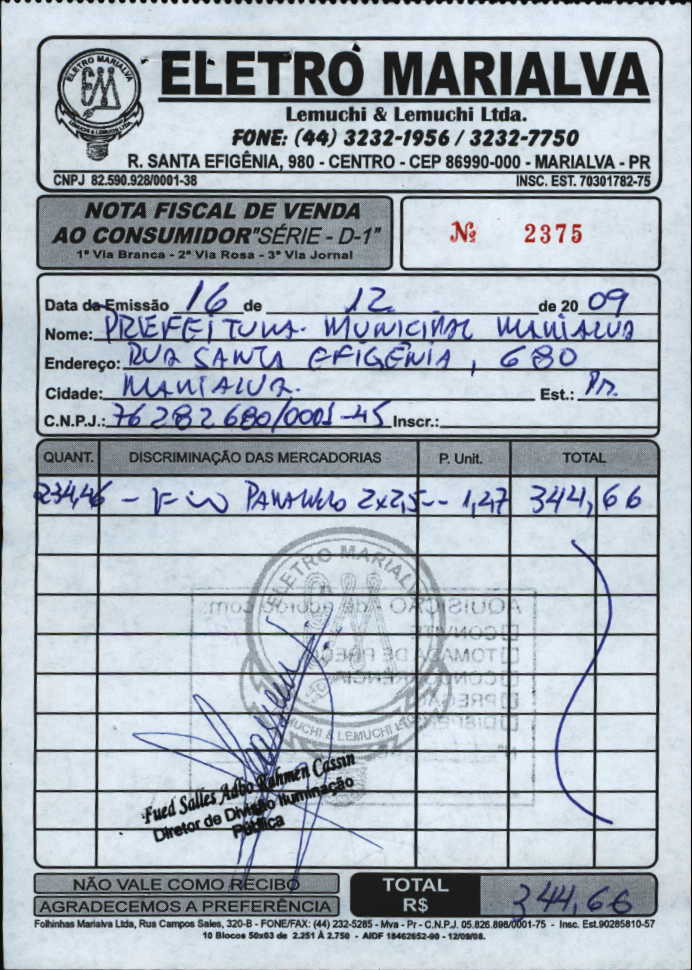 ELETRO MARIALVA
ELETRO MARIALVA
Lemuchi & Lemuchi Ltda.
FONE: (44) 3232-1956 / 3232-7750
R. SANTA EFIGÊNIA, 980 - CENTRO - CEP 86990-000 - MARIALVA - PR
CNPJ 82.590.928/0001-38 INSC. EST. 70301782-75
NOTA FISCAL DE VENDA
AO CONSUMIDOR "SÉRIE - D-1"
1ª Via Branca - 2ª Via Rosa - 3ª Via Jornal
Nº 2375
Data da Emissão 16 de 12 de 20 09
Nome: PREFEITURA MUNICIPAL MARIALVA
Endereço: RUA SANTA EFIGÊNIA, 680
Cidade: MARIALVA. Est.: Pr.
C.N.P.J.: 76282680/0001-45 Inscr.:
QUANT. DISCRIMINAÇÃO DAS MERCADORIAS P. Unit. TOTAL
234,46 - FIO PARALELO 2x2,5 -- 1,47 344,66
ELETRO MARIALVA
LEMUCHI & LEMUCHI LTDA
AQUISIÇÃO - de acordo com:
CONVITE
TOMADA DE PREÇO
CONCORRÊNCIA
PREGÃO
Fued Salles Adbo Rahmen Cassin
Diretor de Divisão Iluminação
Pública
NÃO VALE COMO RECIBO
AGRADECEMOS A PREFERÊNCIA
TOTAL
R$ 344,66
Folhinhas Marialva Ltda, Rua Campos Sales, 320-B - FONE/FAX: (44) 232-5285 - Mva - Pr - C.N.P.J. 05.826.896/0001-75 - Insc. Est.90285810-57
10 Blocos 50x03 de 2.251 À 2.750 - AIDF 18462652-90 - 12/09/08.